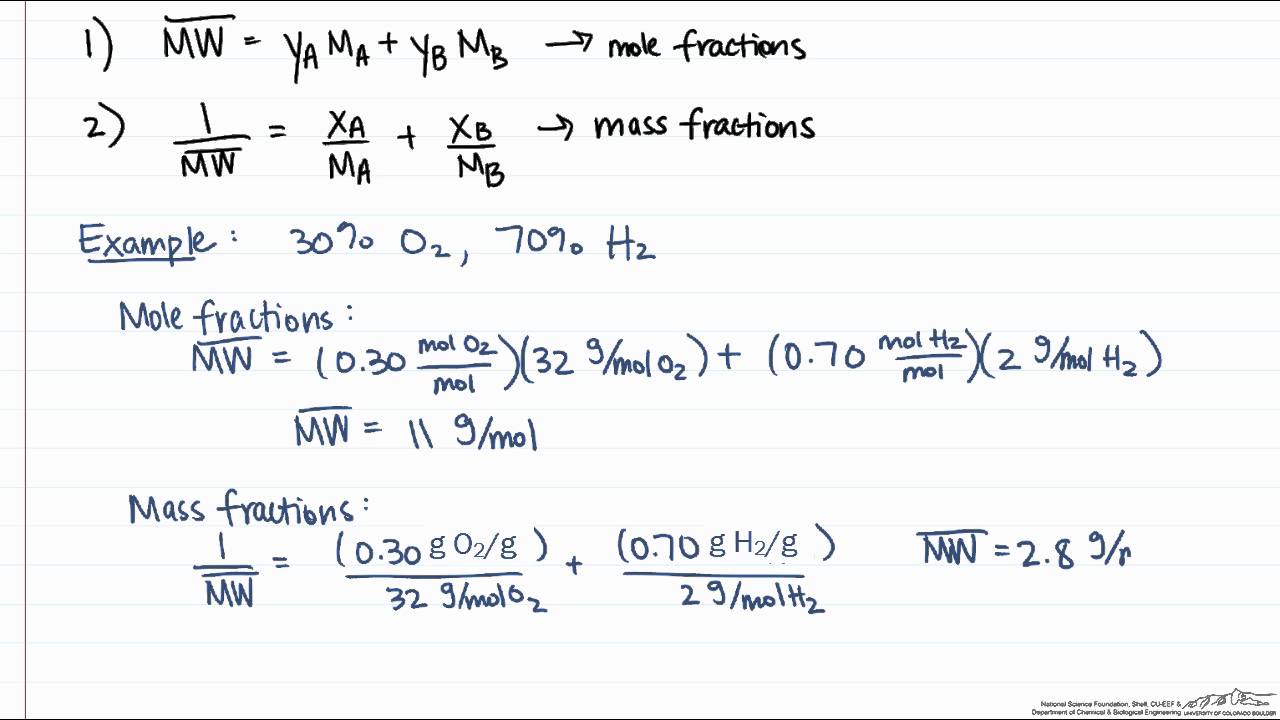 1) MW̅ = yA MA + yB MB → mole fractions
2) 1/MW̅ = xA/MA + xB/MB → mass fractions
Example: 30% O₂, 70% H₂
Mole fractions:
MW̅ = (0.30 mol O₂/mol)(32 g/mol O₂) + (0.70 mol H₂/mol)(2 g/mol H₂)
MW̅ = 11 g/mol
Mass fractions:
1/MW̅ = (0.30 g O₂/g)/32 g/mol O₂ + (0.70 g H₂/g)/2 g/mol H₂ MW̅ = 2.8 g/
National Science Foundation, Shell, CU-EEF &
Department of Chemical & Biological Engineering UNIVERSITY OF COLORADO BOULDER